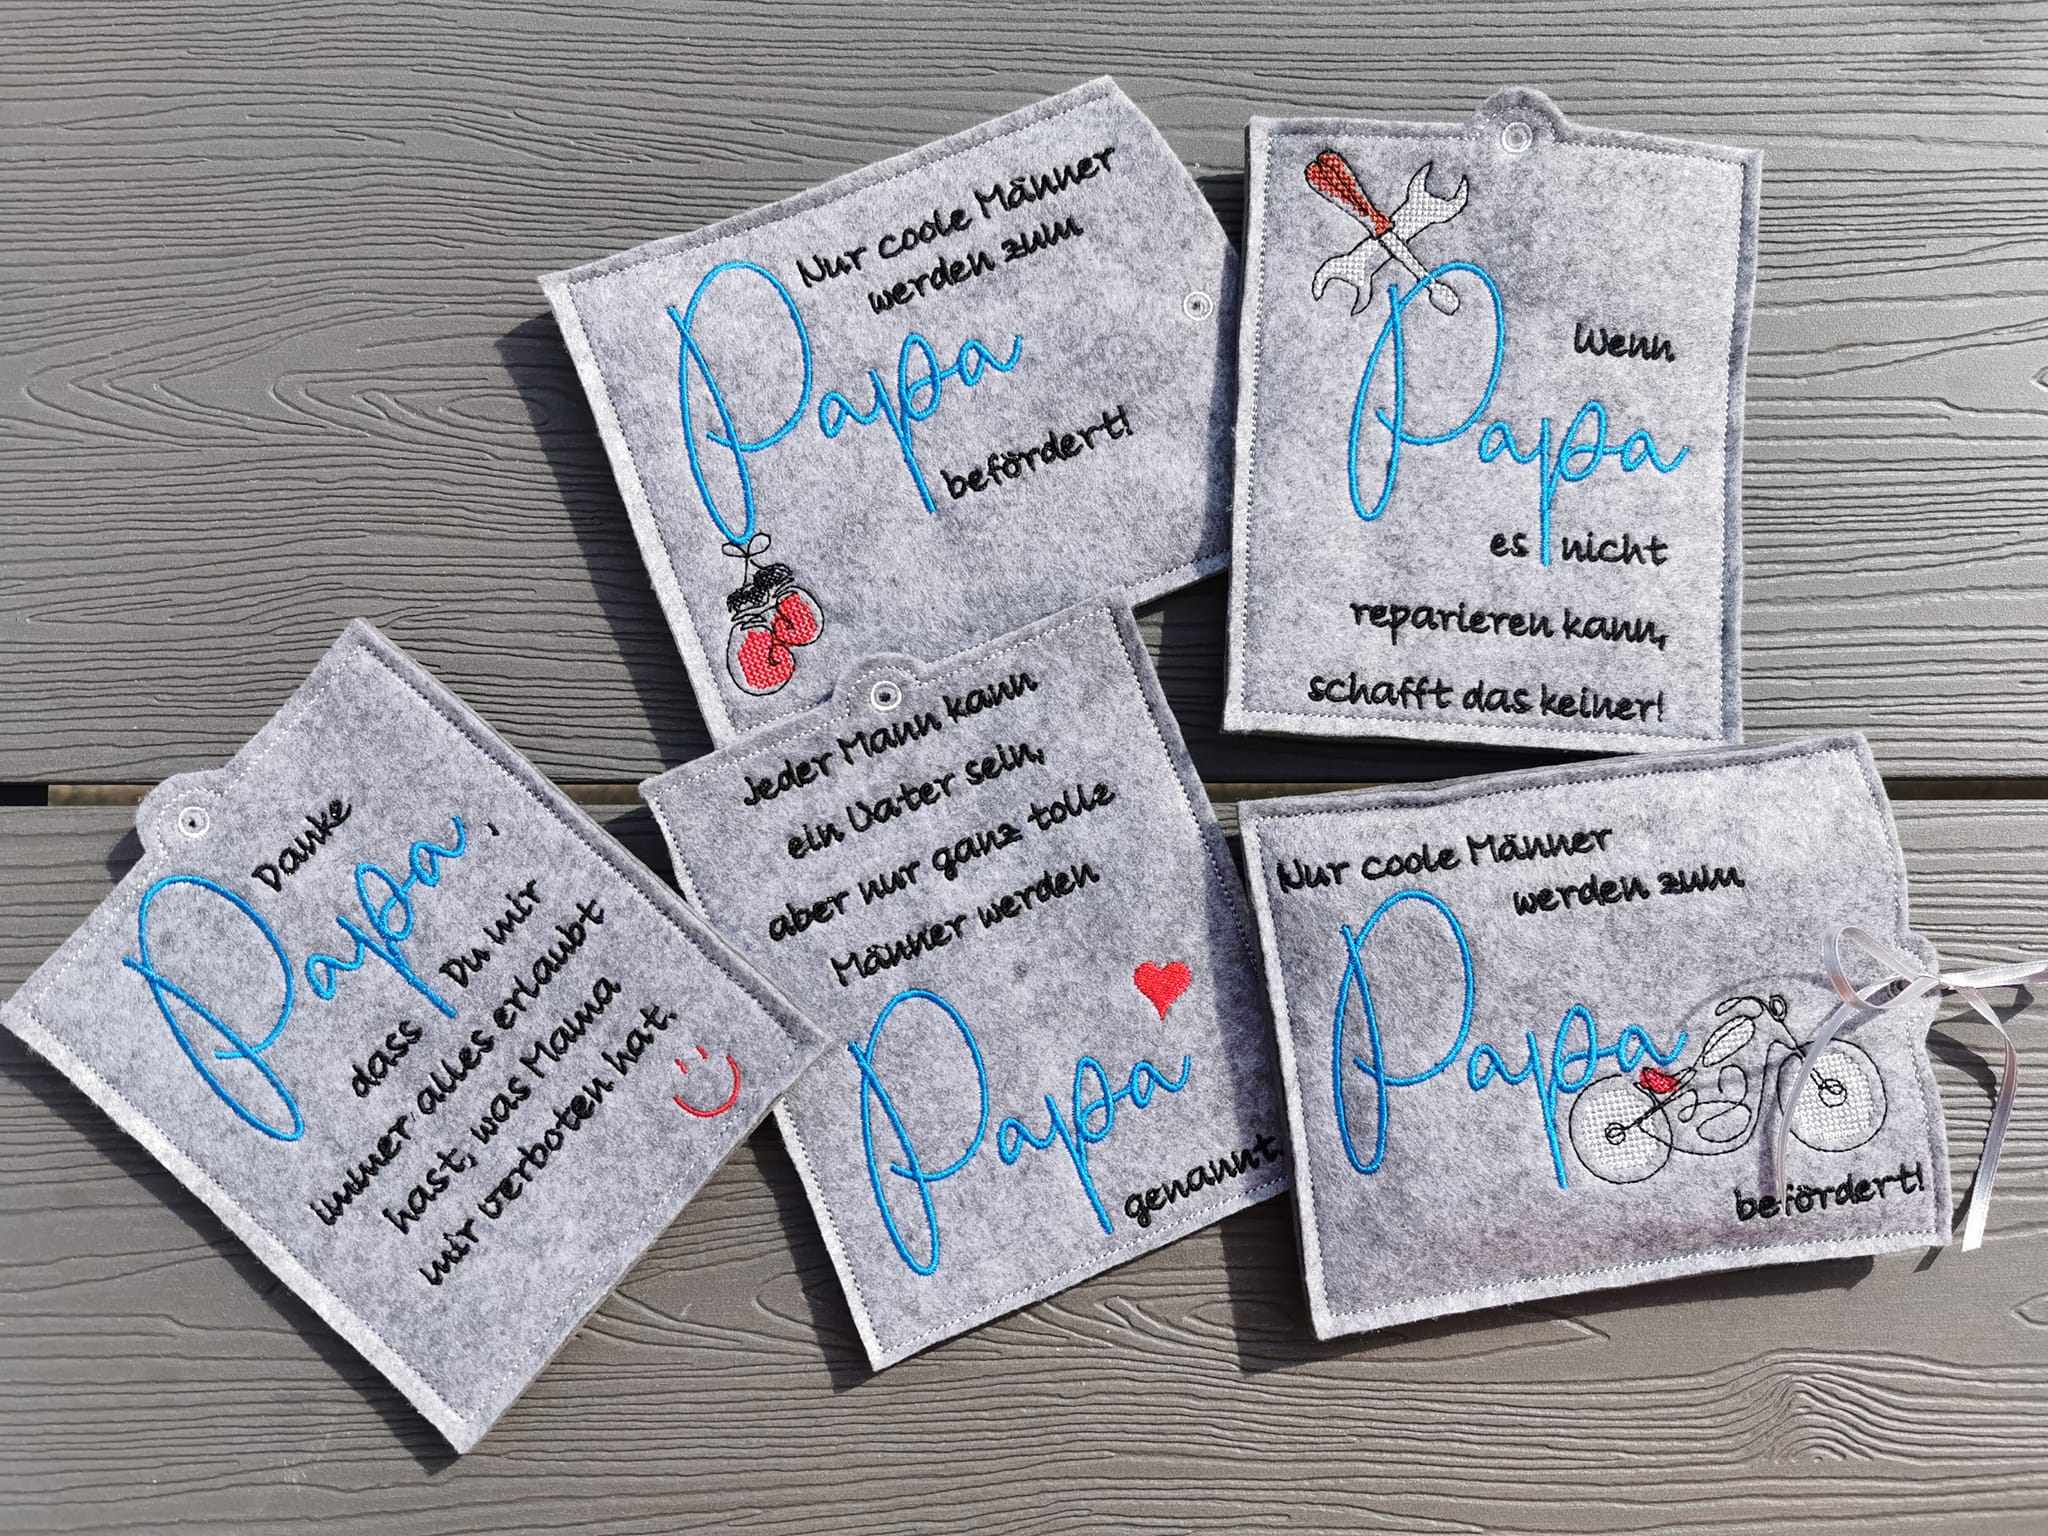 Nur coole Männer
werden zum
Papa
befördert!
Wenn
Papa
es nicht
reparieren kann,
schafft das keiner!
Danke
Papa,
dass Du mir
immer alles erlaubt
hast, was Mama
mir verboten hat.
Jeder Mann kann
ein Vater sein,
aber nur ganz tolle
Männer werden
Papa
genannt.
Nur coole Männer
werden zum
Papa
befördert!